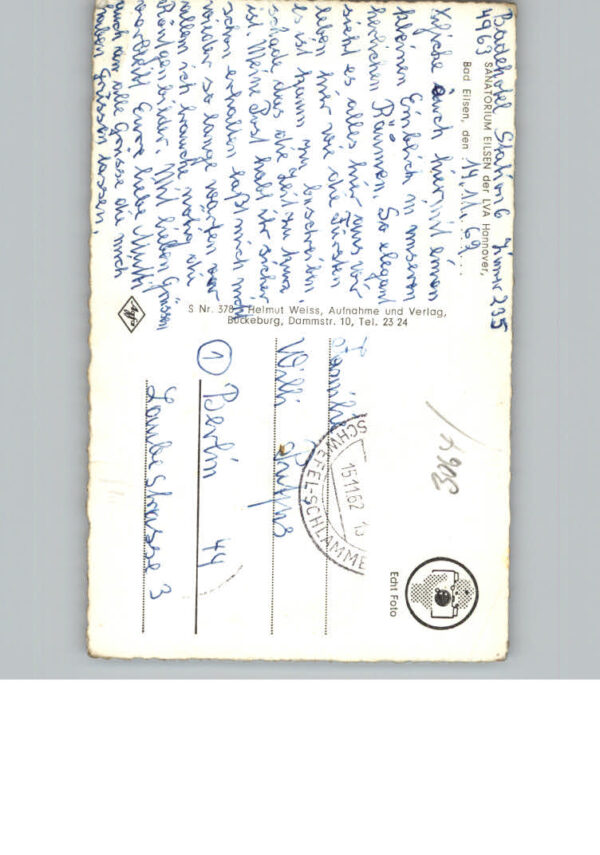 Badehotel Station 6 Zimmer 235
4963
SANATORIUM EILSEN der LVA Hannover,
Bad Eilsen, den 14.11.62
euch hier mit einen
kleinen Einblick in unseren
herlichen Räumen. So elegant
sieht es alles hier aus wir
leben hier wie die Fürsten
es ist kaum zu beschreiben,
schade das die Zeit zu kurz
ist. Meine Post habt ihr sicher
schon erhalten laßt mich nicht
wieder so lange warten vor
allem ich brauche nötig die
Röntgenbilder. Mit lieben Grüssen
Eure liebe Mutti
auch an alle Grüsse die mich
haben Grüssen lassen,
S Nr. 378 Helmut Weiss, Aufnahme und Verlag,
Bückeburg, Dammstr. 10, Tel. 23 24
Agfa
Familie
Willi
① Berlin 44
Strasse 3
SCHWEFEL-SCHLAMM
15.11.62
Echt Foto